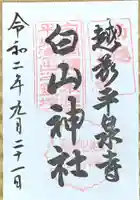 越前平泉寺
白山神社
令和二年九月二十一日